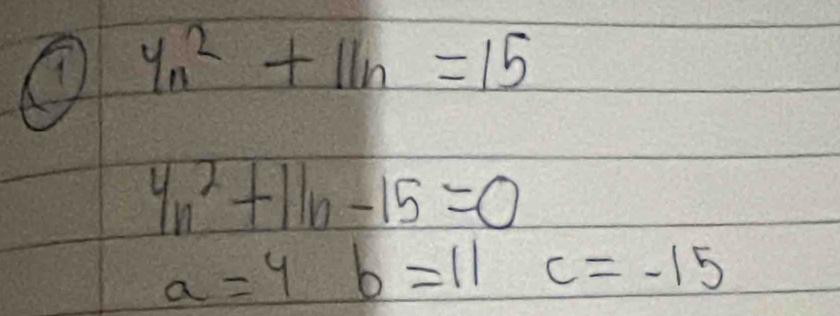 ① 4n² + 11n = 15
4n² + 11n - 15 = 0
a = 4 b = 11 c = -15